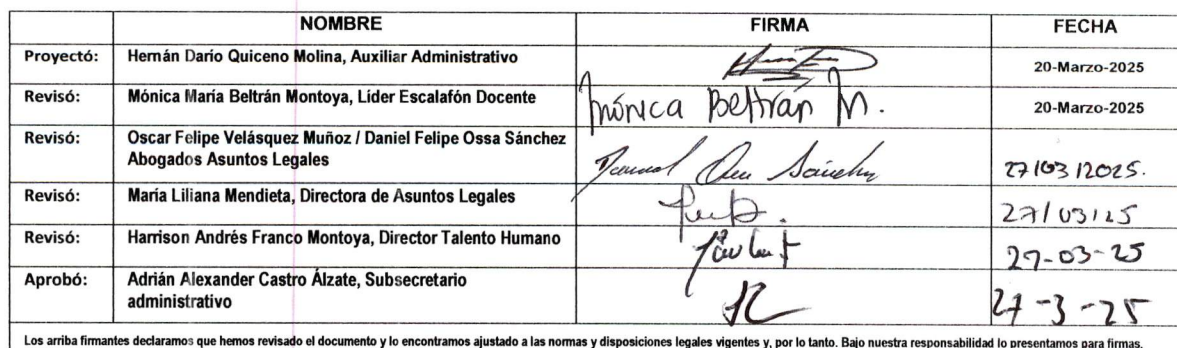 NOMBRE FIRMA FECHA
Proyectó: Hernán Darío Quiceno Molina, Auxiliar Administrativo 20-Marzo-2025
Revisó: Mónica María Beltrán Montoya, Líder Escalafón Docente Mónica Beltrán M. 20-Marzo-2025
Revisó: Oscar Felipe Velásquez Muñoz / Daniel Felipe Ossa Sánchez
Abogados Asuntos Legales 27/03/2025.
Revisó: María Liliana Mendieta, Directora de Asuntos Legales 27/03/25
Revisó: Harrison Andrés Franco Montoya, Director Talento Humano 27-03-25
Aprobó: Adrián Alexander Castro Álzate, Subsecretario
administrativo 27-3-25
Los arriba firmantes declaramos que hemos revisado el documento y lo encontramos ajustado a las normas y disposiciones legales vigentes y, por lo tanto. Bajo nuestra responsabilidad lo presentamos para firmas.